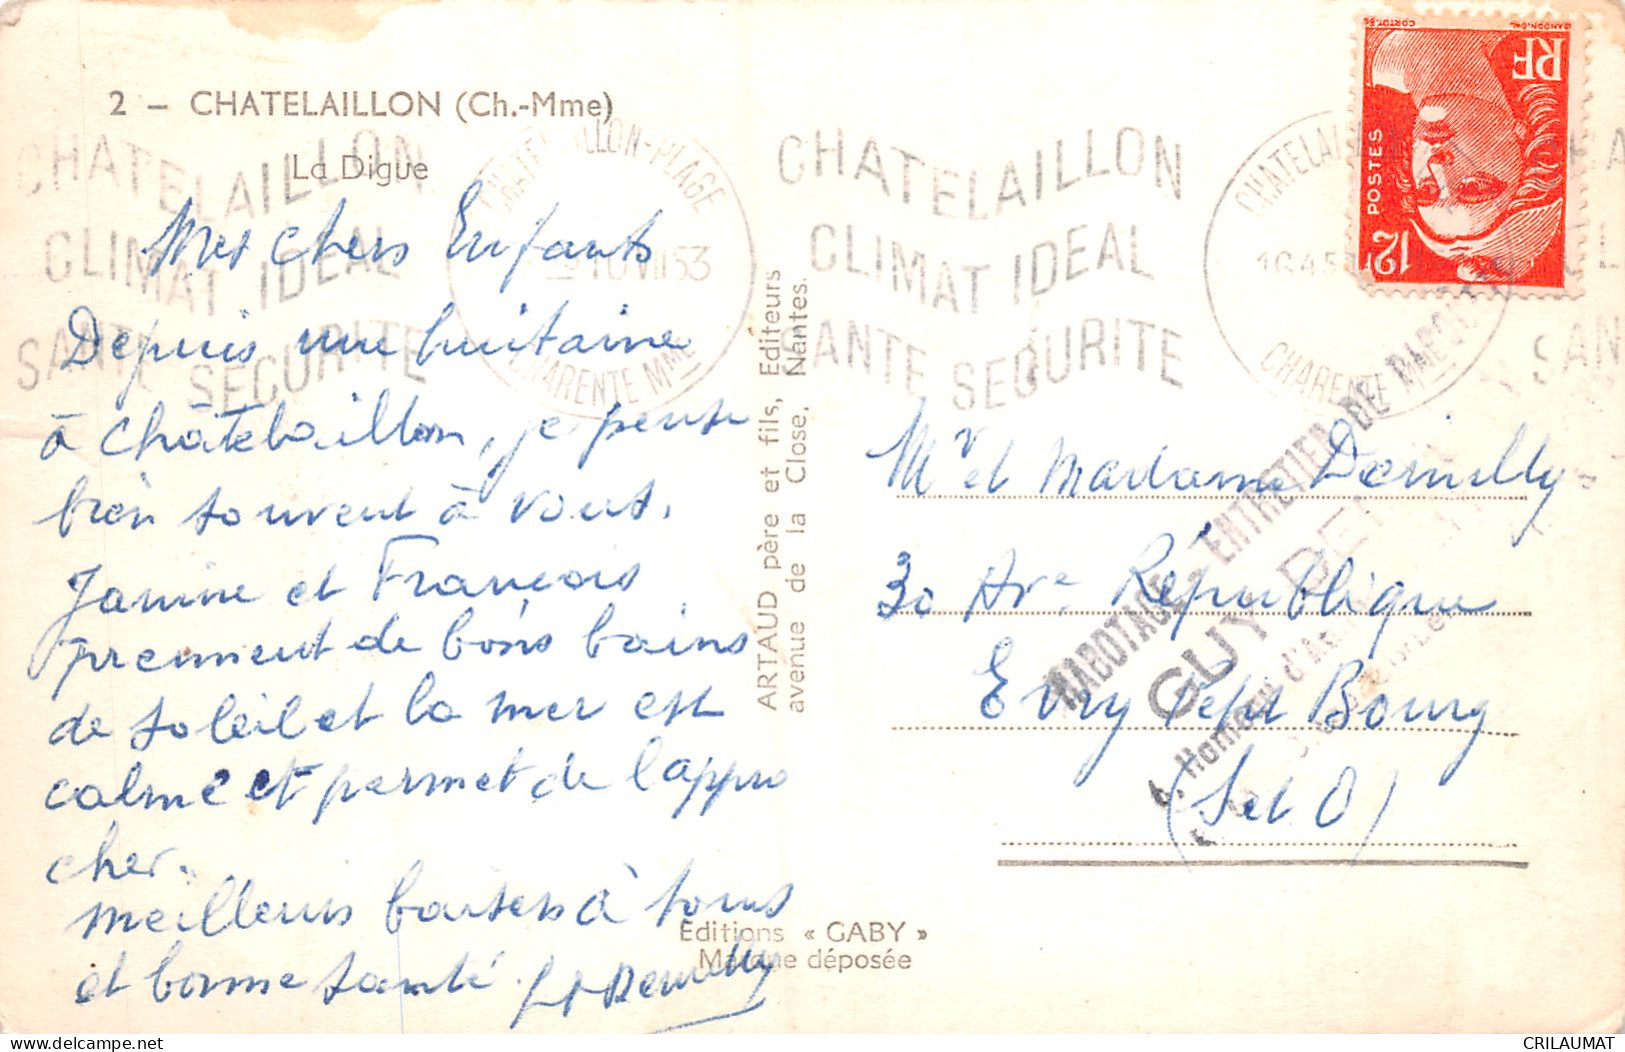 2 – CHATELAILLON (Ch.-Mme)
La Digue
Mes chers Enfants
Depuis une huitaine
à Châtelaillon, je pense
bien souvent à vous.
Janine et François
prennent de bons bains
de soleil et la mer est
calme et permet de l'appro
cher.
Meilleurs baisers à tous
et bonne santé.
ARTAUD père et fils, Editeurs
avenue de la Close, Nantes.
Editions « GABY »
Marque déposée
CHATELAILLON
CLIMAT IDEAL
SANTE SECURITE
CHATELAILLON-PLAGE
10 VII 53
CHARENTE MME
CHATELAILLON
CLIMAT IDEAL
SANTE SECURITE
CHARENTE MME
RF
POSTES
12F
Mr et Madame Demilly
30 Ave République
Evry Petit Bourg
(S et O)
RABOTAGE - ENTRETIEN DE PARQUETS
GUY
2
CRILAUMAT